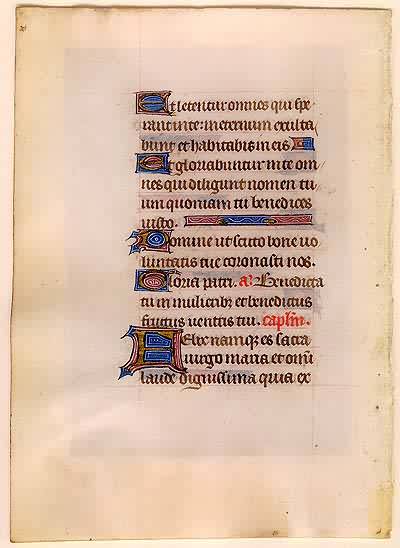 Et letentur omnes qui spe-
rant in te: in eternum exulta
bunt et habitabis in eis
Et gloriabuntur in te om
nes qui diligunt nomen tu
um quoniam tu benedices
iusto.
Domine ut scuto bone vo
luntatis tue coronasti nos.
Gloria patri. a. Benedicta
tu in mulierib; et benedictus
fructus ventris tui. caplm.
Felix namq; es sacra
virgo maria et omi
laude dignissima quia ex